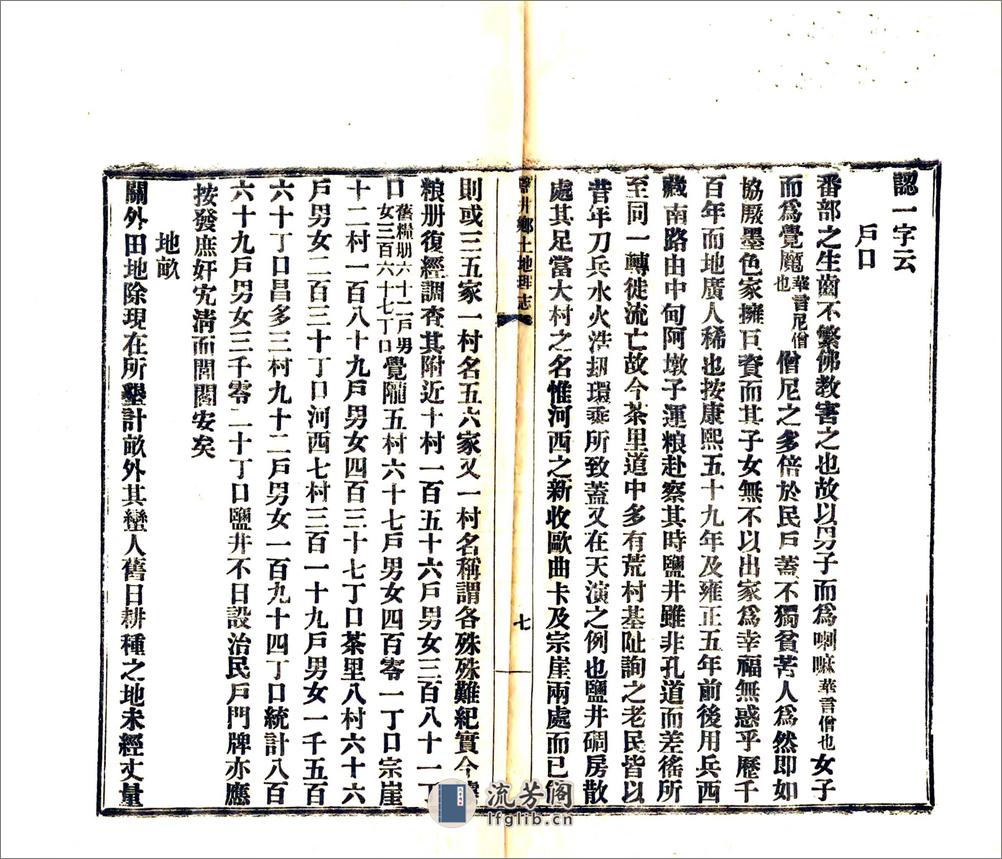 認一字云
戶口
番部之生齒不繁佛敎害之也故以男子而爲喇嘛華言僧也女子
而爲覺魔華言尼僧也僧尼之多倍於民戶蓋不獨貧苦人爲然即如
協廒墨色家擁巨資而其子女無不以出家爲幸福無惑乎歷千
百年而地廣人稀也按康熙五十九年及雍正五年前後用兵西
藏南路由中甸阿墩子運粮赴察其時鹽井雖非孔道而差徭所
至同一轉徙流亡故今茶里道中多有荒村基阯詢之老民皆以
昔年刀兵水火浩刼環乘所致蓋又在天演之例也鹽井碉房散
處其足當大村之名惟河西之新收歐曲卡及宗崖兩處而已
鹽井鄉土地理志
七
則或三五家一村名五六家又一村名稱謂各殊殊難紀實今
粮册復經調查其附近十村一百五十六戶男女三百八十一丁
口舊糧册六十二戶男女三百六十七丁口覺隴五村六十七戶男女四百零一丁口宗崖
十二村一百八十九戶男女四百三十七丁口茶里八村六十六
戶男女二百三十丁口河西七村三百一十九戶男女一千五百
六十丁口昌多三村九十二戶男女一百九十四丁口統計八百
六十九戶男女三千零二十丁口鹽井不日設治民戶門牌亦應
按發庶奸宄淸而閭閻安矣
地畝
關外田地除現在所墾計畝外其蠻人舊日耕種之地未經丈量
流芳阁
lfglib.cn